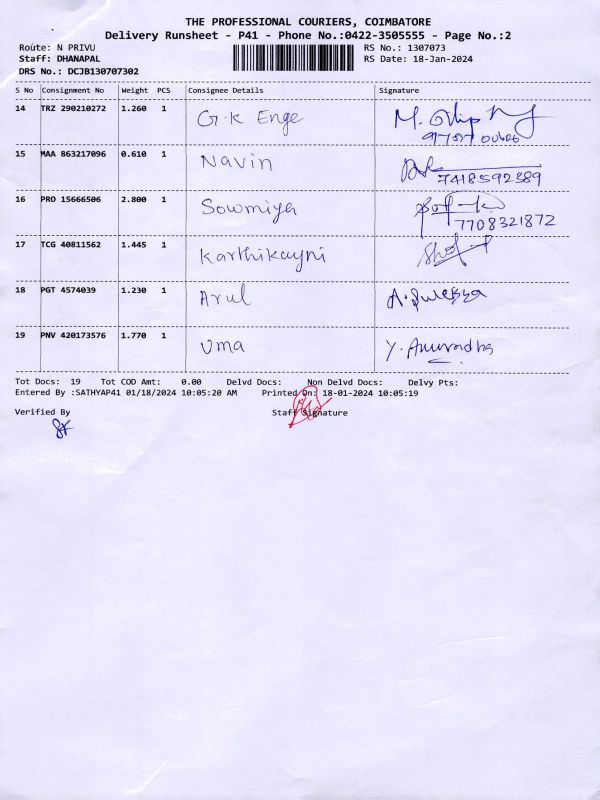 THE PROFESSIONAL COURIERS, COIMBATORE
Delivery Runsheet - P41 - Phone No.:0422-3505555 - Page No.:2
Route: N PRIVU RS No.: 1307073
Staff: DHANAPAL RS Date: 18-Jan-2024
DRS No.: DCJB130707302
S No Consignment No Weight PCS Consignee Details Signature
14 TRZ 290210272 1.260 1 G.K Enge
15 MAA 863217096 0.610 1 Navin
7418592389
16 PRO 15666506 2.800 1 Sowmiya
7708321872
17 TCG 40811562 1.445 1 Karthikayni
18 PGT 4574039 1.230 1 Arul
19 PNV 420173576 1.770 1 Uma Y. Anuradha
Tot Docs: 19 Tot COD Amt: 0.00 Delvd Docs: Non Delvd Docs: Delvy Pts:
Entered By :SATHYAP41 01/18/2024 10:05:20 AM Printed On: 18-01-2024 10:05:19
Verified By Staff Signature